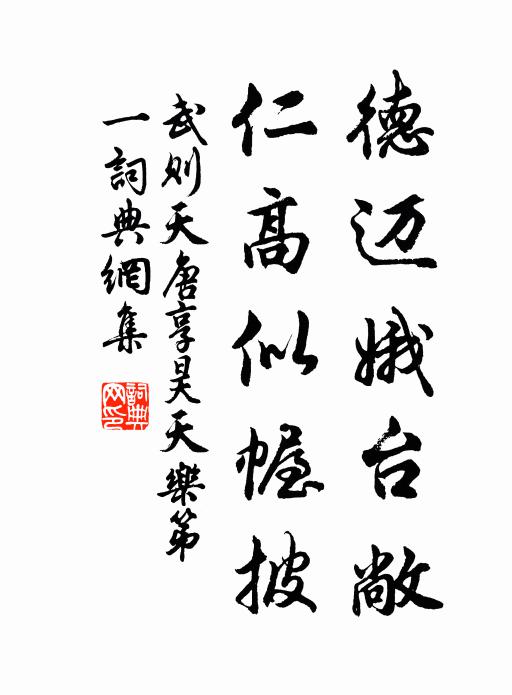 德迈娥台敞
仁高似幄披
武则天唐享昊天樂第
一詞典網集
詞典
网印